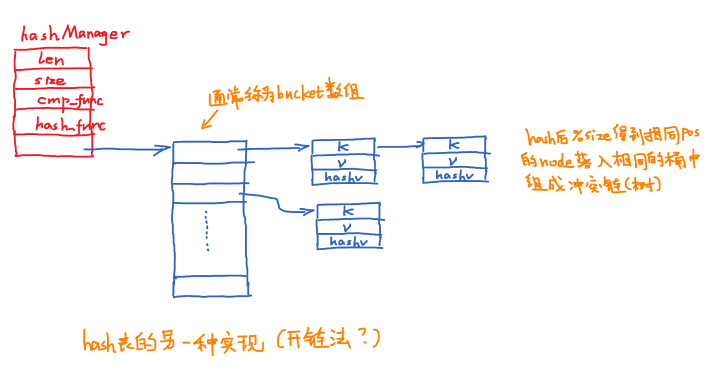 hashManager
len
size
cmp_func
hash_func
通常称为bucket数组
k
v
hashv
k
v
hashv
k
v
hashv
hash后%size得到相同pos
的node落入相同的桶中
组成冲突链(树)
hash表的另一种实现(开链法?)